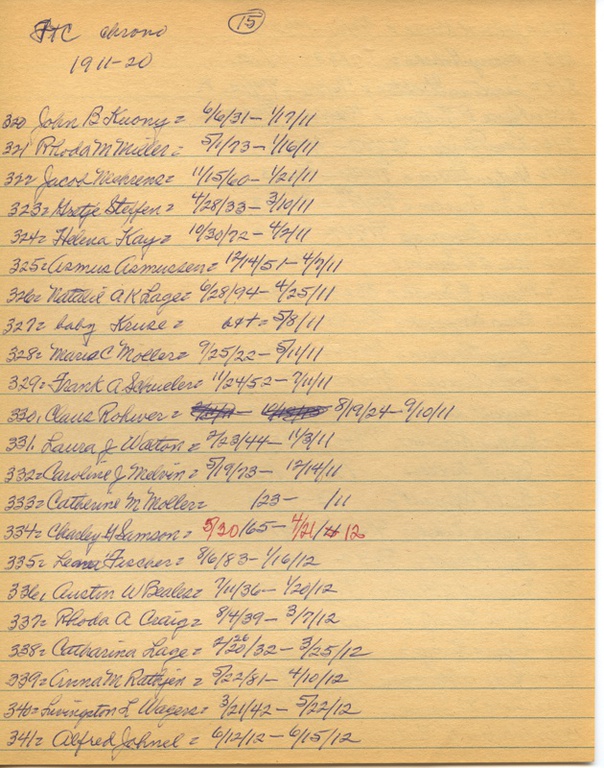 15
FTC Chrono
1911-20
320 John B Kuony = 6/6/31 - 1/17/11
321 Rhoda M Miller = 5/1/73 - 1/16/11
322 Jacob = 11/15/60 - 1/21/11
323 = Gretje Steffen = 4/28/33 - 3/10/11
324 = Helena Kay = 10/30/72 - 4/2/11
325 = Asmus Asmussen = 12/14/51 - 4/7/11
326 = Natalie A K Lage = 6/28/94 - 4/25/11
327 = baby Kruse = 5/8/11
328 = Maria C Moller = 9/25/22 - 5/11/11
329 = Frank A Schueler = 11/24/52 - 7/11/11
330, Claus Rohwer = 8/19/24 - 9/10/11
331. Laura J Walton = 2/23/44 - 11/3/11
332 = Caroline J Melvin = 5/19/73 - 12/14/11
333 = Catherine M Moller = /23 - /11
334 = Charley H Samson = 5/20/65 - 4/21/12
335 = Fischer = 8/6/83 - 1/16/12
336, Austin W Beales = 7/11/36 - 1/20/12
337 = Rhoda A Craig = 8/4/39 - 3/7/12
338 = Catharina Lage = 2/26/32 - 3/25/12
339 = Anna M Rathjen = 5/22/81 - 4/10/12
340 = Livingston L Wagers = 3/21/42 - 5/22/12
341 = Alfred Johnel = 6/12/12 - 6/15/12